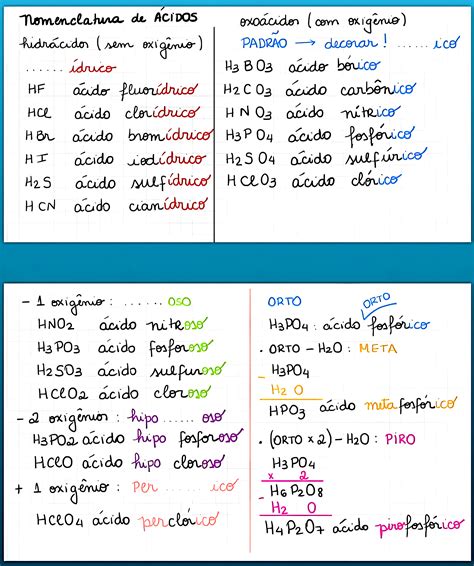 Nomenclatura de ÁCIDOS
hidrácidos (sem oxigênio)
...... ídrico
HF ácido fluorídrico
HCl ácido clorídrico
HBr ácido bromídrico
HI ácido iodídrico
H2S ácido sulfídrico
HCN ácido cianídrico
oxoácidos (com oxigênio)
PADRÃO → decorar! ...... ico
H3BO3 ácido bórico
H2CO3 ácido carbônico
HNO3 ácido nítrico
H3PO4 ácido fosfórico
H2SO4 ácido sulfúrico
HClO3 ácido clórico
- 1 oxigênio: ...... OSO
HNO2 ácido nitroso
H3PO3 ácido fosforoso
H2SO3 ácido sulfuroso
HClO2 ácido cloroso
- 2 oxigênios: hipo ...... oso
H3PO2 ácido hipo fosforoso
HClO ácido hipo cloroso
+ 1 oxigênio: Per ...... ico
HClO4 ácido perclórico
ORTO
ORTO
H3PO4: ácido fosfórico
. ORTO - H2O: META
H3PO4
- H2O
HPO3 ácido metafosfórico
. (ORTO x 2) - H2O: PIRO
H3PO4
x 2
H6P2O8
- H2O
H4P2O7 ácido pirofosfórico